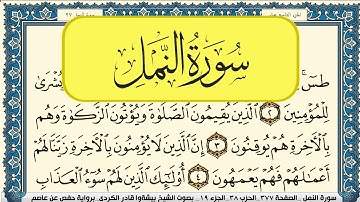 سورة النمل ٢٧
سُورَةُ النَّمْلِ
طسٓ
بُشْرَىٰ
لِلْمُؤْمِنِينَ ٢ الَّذِينَ يُقِيمُونَ الصَّلَوٰةَ وَيُؤْتُونَ الزَّكَوٰةَ وَهُم
بِالْآخِرَةِ هُمْ يُوقِنُونَ ٣ إِنَّ الَّذِينَ لَا يُؤْمِنُونَ بِالْآخِرَةِ زَيَّنَّا لَهُمْ
أَعْمَٰلَهُمْ فَهُمْ يَعْمَهُونَ ٤ أُو۟لَٰٓئِكَ الَّذِينَ لَهُمْ سُوٓءُ الْعَذَابِ
سورة النمل . الصفحة ٣٧٧ الحزب ٣٨ . الجزء ١٩ .. بصوت الشيخ بيشةوا قادر الكردي . برواية حفص عن عاصم